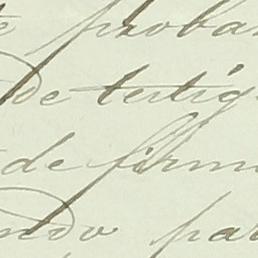 proba
de testig
de firm
ndo pa